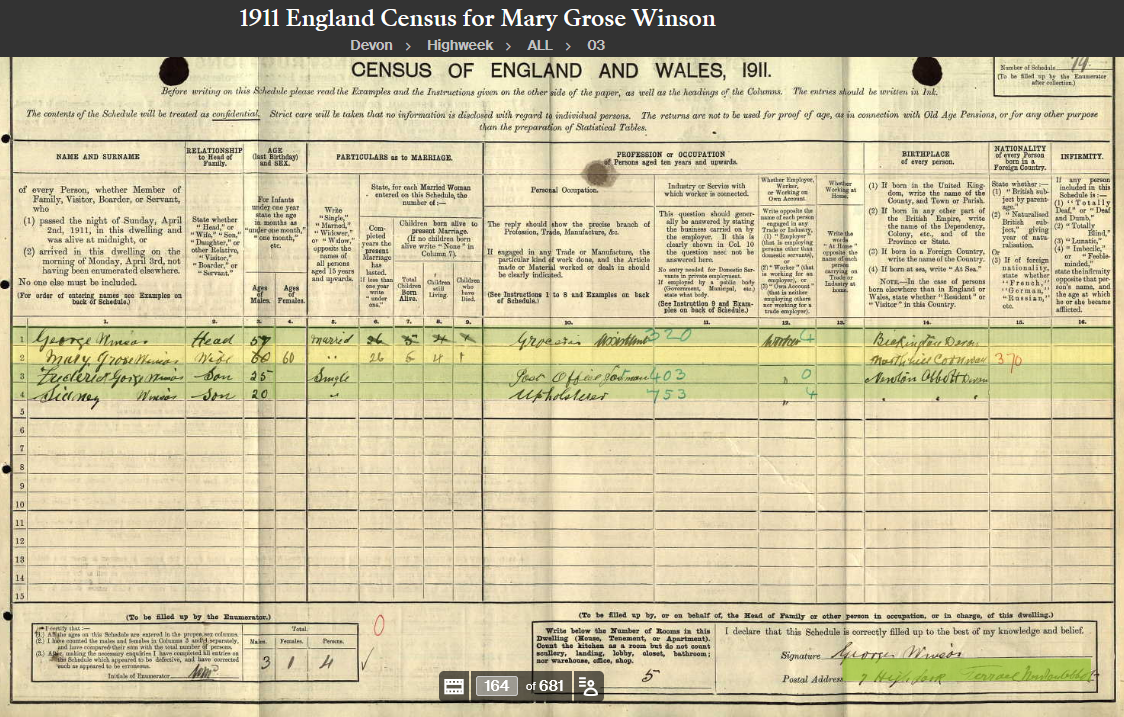 1911 England Census for Mary Grose Winson
Devon > Highweek > ALL > 03
CENSUS OF ENGLAND AND WALES, 1911.
Number of Schedule 79
(To be filled up by the Enumerator
after collection.)
Before writing on this Schedule please read the Examples and the Instructions given on the other side of the paper, as well as the headings of the Columns. The entries should be written in Ink.
The contents of the Schedule will be treated as confidential. Strict care will be taken that no information is disclosed with regard to individual persons. The returns are not to be used for proof of age, as in connection with Old Age Pensions, or for any other purpose
than the preparation of Statistical Tables.
NAME AND SURNAME
of every Person, whether Member of
Family, Visitor, Boarder, or Servant,
who
(1) passed the night of Sunday, April
2nd, 1911, in this dwelling and
was alive at midnight, or
(2) arrived in this dwelling on the
morning of Monday, April 3rd, not
having been enumerated elsewhere.
No one else must be included.
(For order of entering names see Examples on
back of Schedule.)
RELATIONSHIP
to Head of
Family.
State whether
"Head," or
"Wife," "Son,"
"Daughter," or
other Relative,
"Visitor,"
"Boarder," or
"Servant."
AGE
(last Birthday)
and SEX.
For Infants
under one year
state the age
in months as
"under one month,"
"one month,"
etc.
Ages
of
Males.
Ages
of
Females.
PARTICULARS as to MARRIAGE.
Write
"Single,"
"Married,"
"Widower,"
or "Widow,"
opposite the
names of
all persons
aged 15 years
and upwards.
State, for each Married Woman
entered on this Schedule, the
number of:—
Completed
years the
present
Marriage
has
lasted.
If less than
one year
write
"under
one."
Children born alive to
present Marriage.
(If no children born
alive write "None" in
Column 7).
Total
Children
Born
Alive.
Children
still
Living.
Children
who
have
Died.
PROFESSION or OCCUPATION
of Persons aged ten years and upwards.
Personal Occupation.
The reply should show the precise branch of
Profession, Trade, Manufacture, &c.
If engaged in any Trade or Manufacture, the
particular kind of work done, and the Article
made or Material worked or dealt in should
be clearly indicated.
(See Instructions 1 to 8 and Examples on back
of Schedule.)
Industry or Service with
which worker is connected.
This question should generally
be answered by stating
the business carried on by
the employer. If this is
clearly shown in Col. 10
the question need not be
answered here.
No entry needed for Domestic Servants
in private employment.
If employed by a public body
(Government, Municipal, etc.)
state what body.
(See Instruction 9 and Examples
on back of Schedule.)
Whether Employer,
Worker,
or Working on
Own Account.
Write opposite the
name of each person
engaged in any
Trade or Industry,
(1) "Employer"
(that is employing
persons other than
domestic servants),
or
(2) "Worker" (that
is working for an
employer), or
(3) "Own Account"
(that is neither
employing others
nor working for a
trade employer).
Whether
Working at
Home.
Write the
words
"At Home"
opposite the
name of each
person
carrying on
Trade or
Industry at
home.
BIRTHPLACE
of every person.
(1) If born in the United Kingdom,
write the name of the
County, and Town or Parish.
(2) If born in any other part of
the British Empire, write
the name of the Dependency,
Colony, etc., and of the
Province or State.
(3) If born in a Foreign Country,
write the name of the Country.
(4) If born at sea, write "At Sea."
NOTE.—In the case of persons
born elsewhere than in England or
Wales, state whether "Resident" or
"Visitor" in this Country.
NATIONALITY
of every Person
born in a
Foreign Country.
State whether:—
(1) "British subject
by parentage."
(2) "Naturalised
British subject,"
giving
year of naturalisation.
Or
(3) If of foreign
nationality,
state whether
"French,"
"German,"
"Russian,"
etc.
INFIRMITY.
If any person
included in this
Schedule is:—
(1) "Totally
Deaf," or "Deaf
and Dumb,"
(2) "Totally
Blind,"
(3) "Lunatic,"
(4) "Imbecile,"
or "Feeble-minded,"
state the infirmity
opposite that person's
name, and
the age at which
he or she became
afflicted.
1. 2. 3. 4. 5. 6. 7. 8. 9. 10. 11. 12. 13. 14. 15. 16.
1 George Winson Head 57 Married 26 5 4 1 Grocers 320 Worker 4 Bickington Devon
2 Mary Grose Winson Wife 60 60 " 26 5 4 1 North hill Cornwall 370
3 Frederick George Winson Son 25 Single Post Office Postman 403 " 0 Newton Abbott Devon
4 Sidney Winson Son 20 " Upholsterer 753 " 4 " " "
5
6
7
8
9
10
11
12
13
14
15
(To be filled up by the Enumerator.)
Total.
Males. Females. Persons.
3 1 4
0
Initials of Enumerator
(To be filled up by, or on behalf of, the Head of Family or other person in occupation, or in charge, of this dwelling.)
Write below the Number of Rooms in this
Dwelling (House, Tenement, or Apartment).
Count the kitchen as a room but do not count
scullery, landing, lobby, closet, bathroom;
nor warehouse, office, shop.
5
I declare that this Schedule is correctly filled up to the best of my knowledge and belief.
Signature George Winson
Postal Address 7 Highweek Terrace Newton Abbot
164 of 681